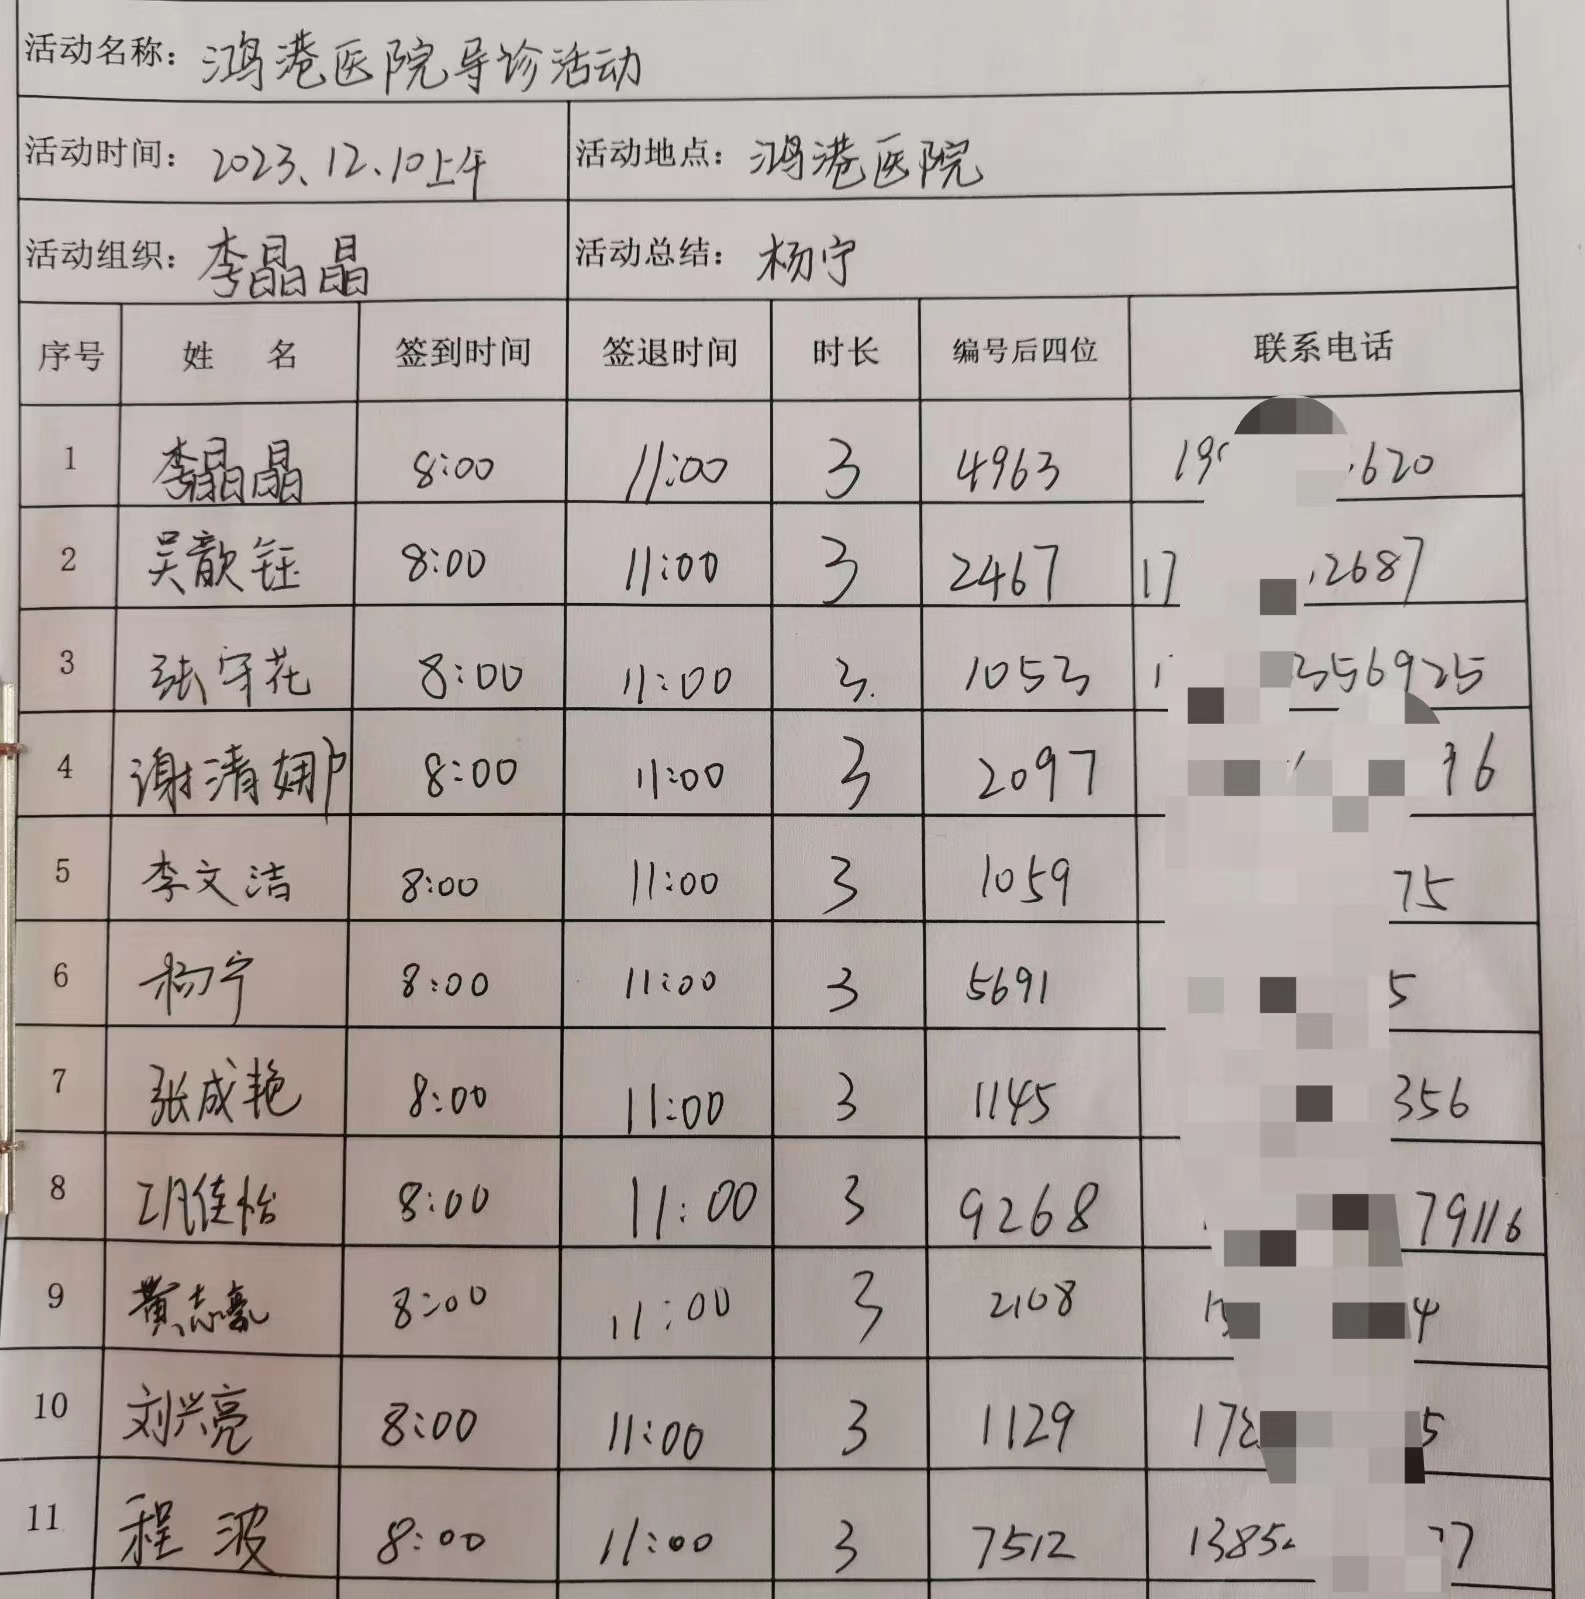 活动名称：鸿港医院导诊活动
活动时间：2023.12.10上午 活动地点：鸿港医院
活动组织：李晶晶 活动总结：杨宁
序号 姓名 签到时间 签退时间 时长 编号后四位 联系电话
1 李晶晶 8:00 11:00 3 4963 19 620
2 吴歆钰 8:00 11:00 3 2467 17 2687
3 张守花 8:00 11:00 3 1053 1 356925
4 谢清 8:00 11:00 3 2097 6
5 李文洁 8:00 11:00 3 1059 75
6 杨宁 8:00 11:00 3 5691 5
7 张成艳 8:00 11:00 3 1145 356
8 佳怡 8:00 11:00 3 9268 79116
9 黄志豪 8:00 11:00 3 2108 4
10 刘兴亮 8:00 11:00 3 1129 178 5
11 程波 8:00 11:00 3 7512 1385 77